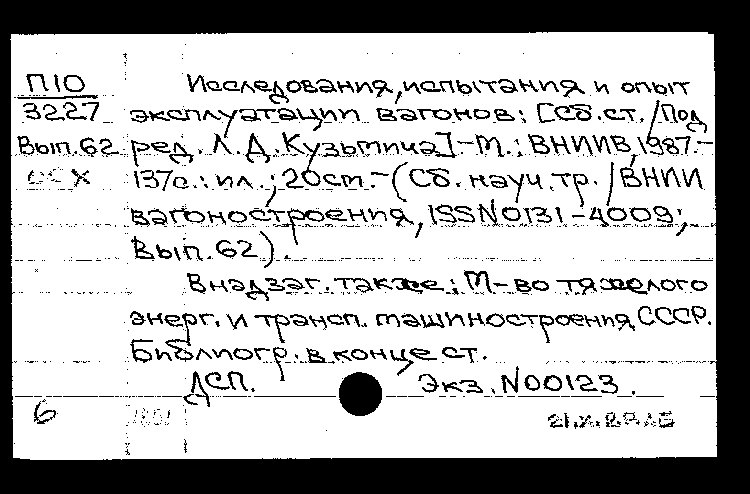 П10
3227
Вып.62
ОСХ
Исследования, испытания и опыт
эксплуатации вагонов: [Сб.ст./Под
ред. Л.Д.Кузьмича].-М.: ВНИИВ, 1987.-
137с.: ил.; 20см.-(Сб. науч. тр./ВНИИ
вагоностроения, ISSN0131-4009;
Вып.62).
В надзаг. также: М-во тяжелого
энерг. и трансп. машиностроения СССР.
Библиогр. в конце ст.
ДСП. Экз. N00123.
6